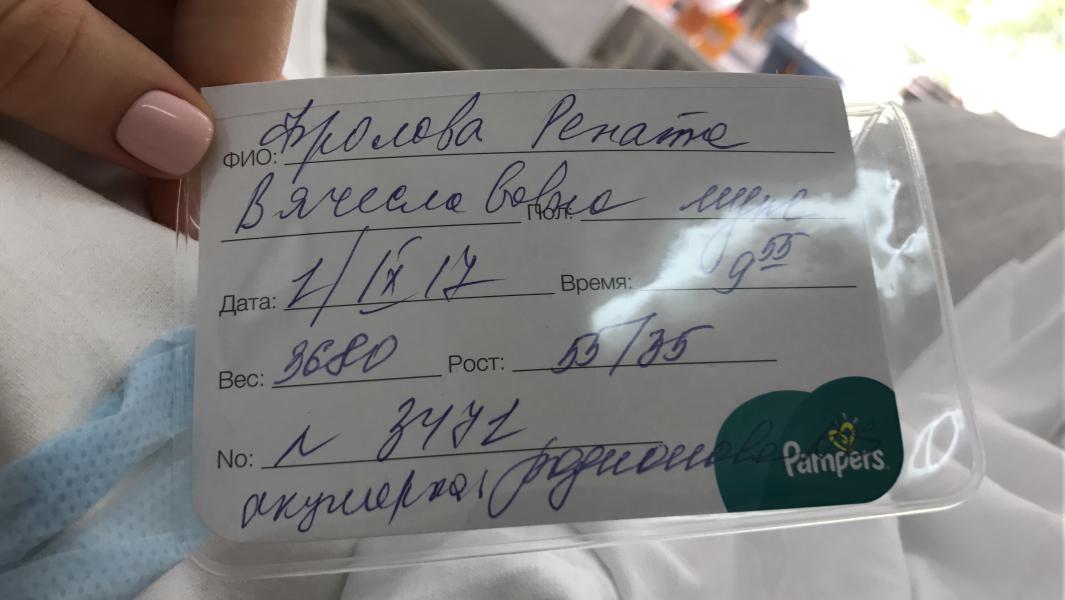 ФИО: Фролова Рената
Вячеславовна Пол: муж
Дата: 1/IX 17 Время: 9 55
Вес: 3680 Рост: 55/35
No: 3471
акушерка Родионова
Pampers